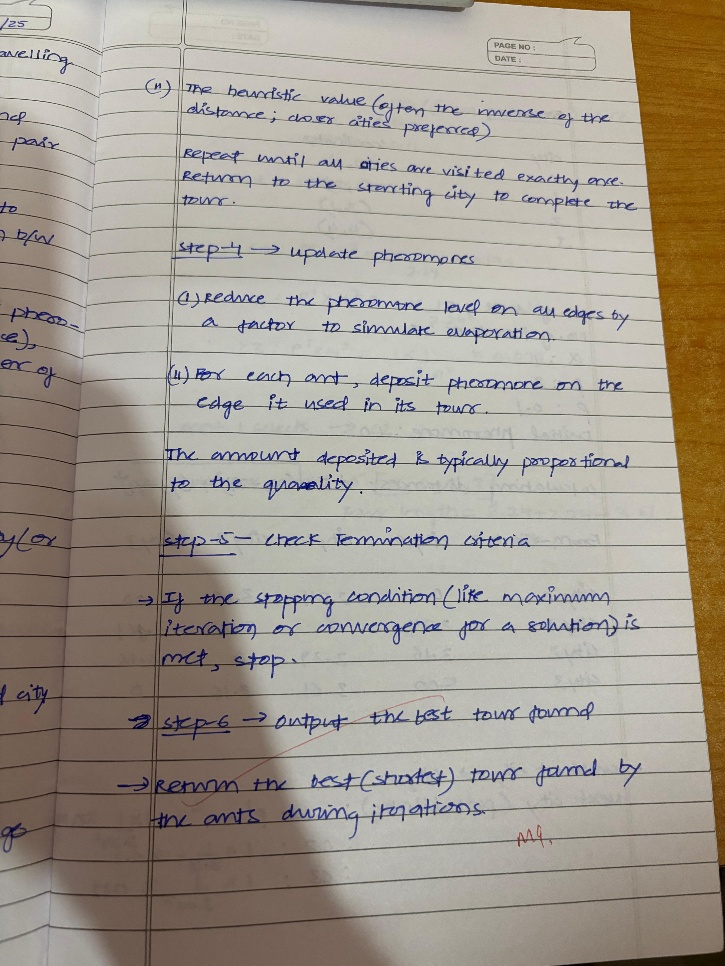 /25
avelling
pair
to
b/w
phero-
er of
y(or
city
go
PAGE NO :
DATE :
(ii) The heuristic value (often the inverse of the
distance; closer cities preferred)
Repeat until all cities are visited exactly once.
Return to the starting city to complete the
tour.
step-4 → update pheromones
(i) Reduce the pheromone level on all edges by
a factor to simulate evaporation.
(ii) For each ant, deposit pheromone on the
edge it used in its tour.
The amount deposited is typically proportional
to the quality.
step-5 – check Termination criteria
→ If the stopping condition (like maximum
iteration or convergence for a solution) is
met, stop.
→ step-6 → output the best tour found
→ Return the best (shortest) tour found by
the ants during iterations.